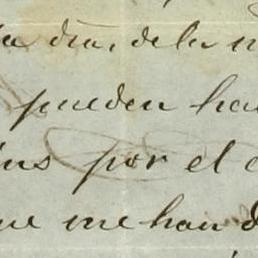 dia, de la
pueden ha
por el
me han d